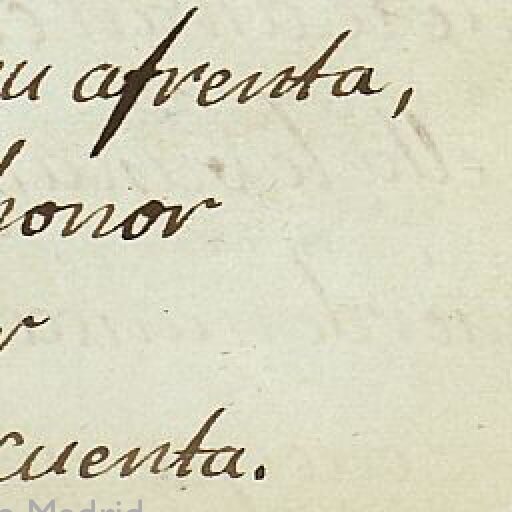 su afrenta,
honor
r
cuenta.
Madrid